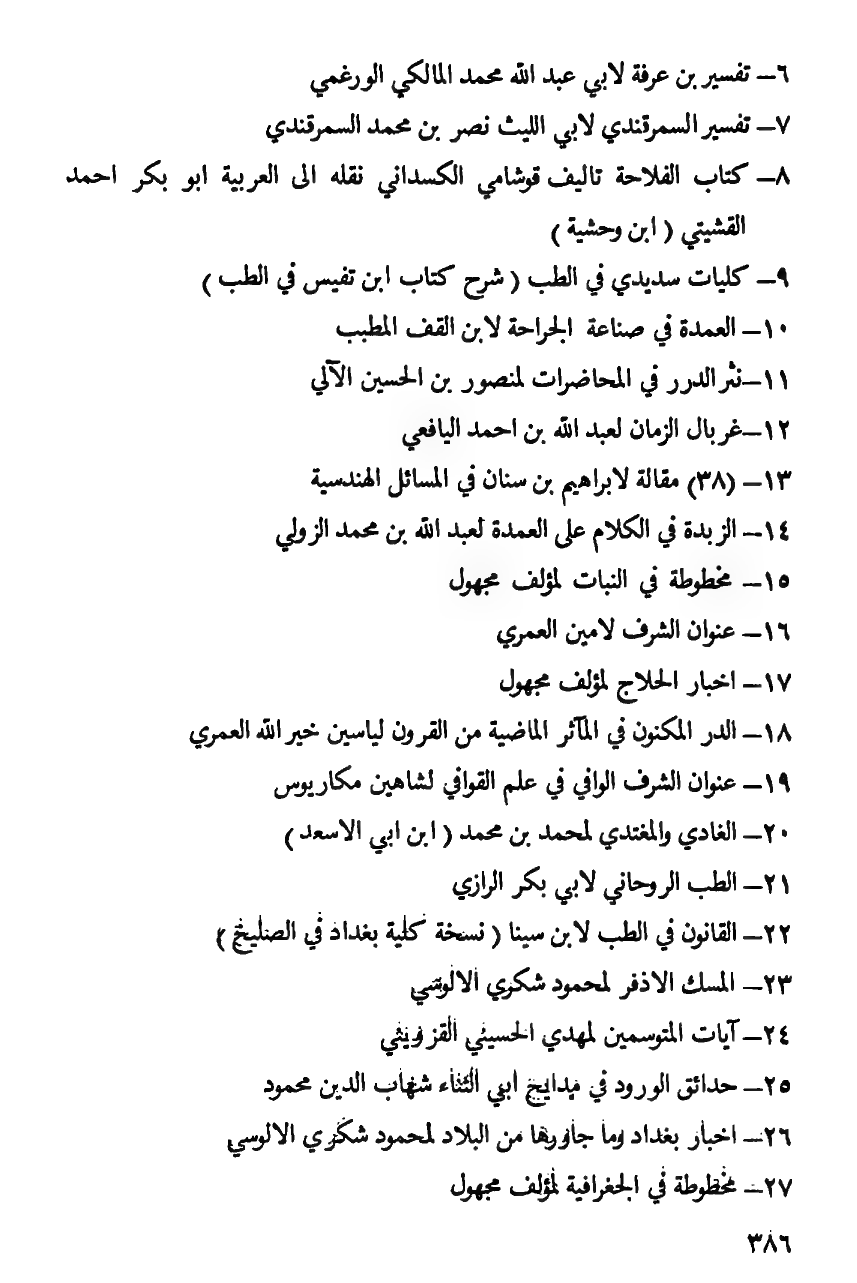 ٦ــ تفسير بن عرفة لابي عبد الله محمد المالكي الورغمي
٧ــ تفسير السمرقندي لابي الليث نصر بن محمد السمرقندي
٨ــ كتاب الفلاحة تاليف قوشامي الكسداني نقله الى العربية ابو بكر احمد
القشيتي ( ابن وحشية )
٩ــ كليات سديدي في الطب ( شرح كتاب ابن تفيس في الطب )
١٠ــ العمدة في صناعة الجراحة لابن القف المطبب
١١ــ نثر الدرر في المحاضرات لمنصور بن الحسين الآلي
١٢ــ غربال الزمان لعبد الله بن احمد اليافعي
١٣ــ (٣٨) مقالة لابراهيم بن سنان في المسائل الهندسية
١٤ــ الزبدة في الكلام على العمدة لعبد الله بن محمد الزولي
١٥ــ مخطوطة في النبات لمؤلف مجهول
١٦ــ عنوان الشرف لامين العمري
١٧ــ اخبار الحلاج لمؤلف مجهول
١٨ــ الدر المكنون في المآثر الماضية من القرون لياسين خير الله العمري
١٩ــ عنوان الشرف الوافي في علم القوافي لشاهين مكاريوس
٢٠ــ الغادي والمغتدي لمحمد بن محمد ( ابن ابي الاسعد )
٢١ــ الطب الروحاني لابي بكر الرازي
٢٢ــ القانون في الطب لابن سينا ( نسخة كلية بغداد في الصليخ )
٢٣ــ المسك الاذفر لمحمود شكري الالوسي
٢٤ــ آيات المتوسمين لمهدي الحسيني القزويني
٢٥ــ حدائق الورود في مدايح أبي الثناء شهاب الدين محمود
٢٦ــ اخبار بغداد وما جاورها من البلاد لمحمود شكري الالوسي
٢٧ــ مخطوطة في الجغرافية لمؤلف مجهول
٣٨٦